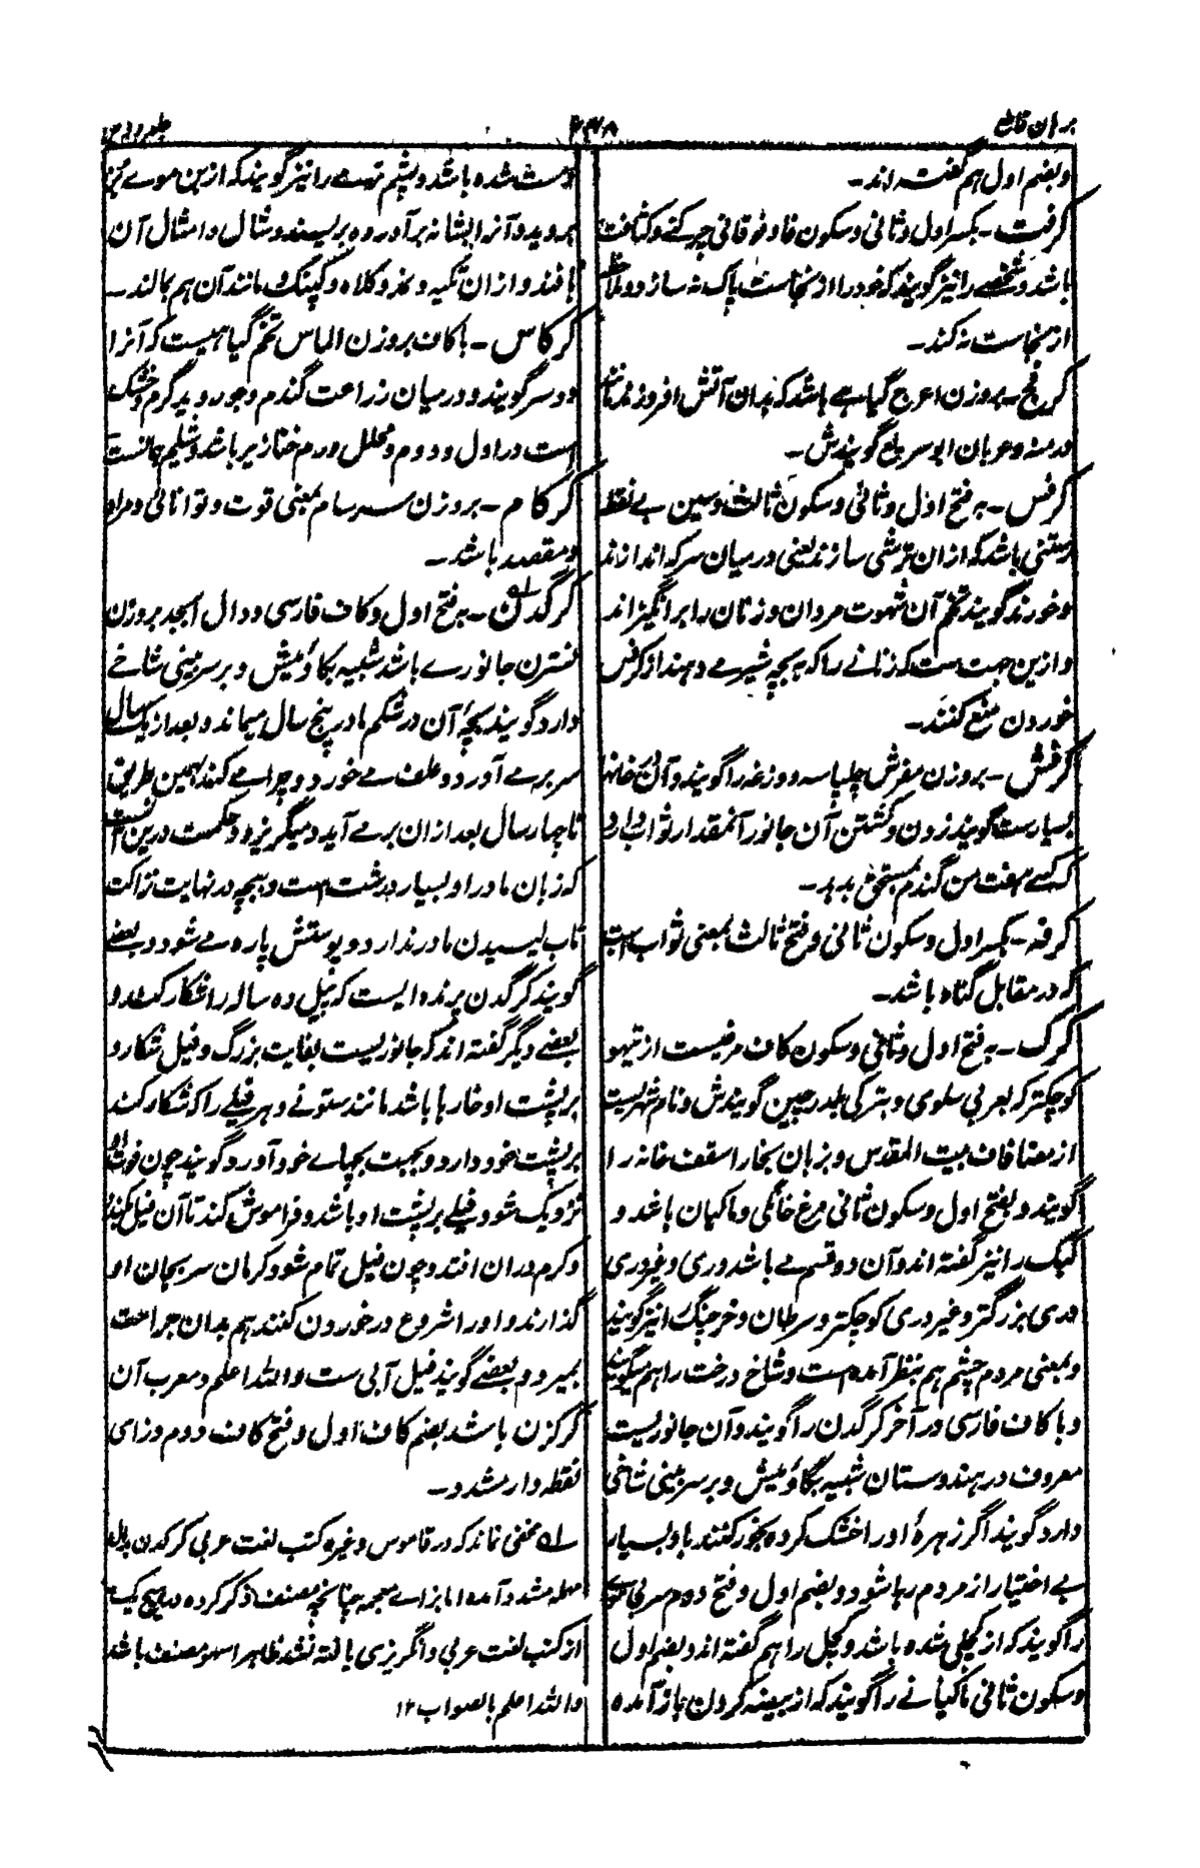 برهان قاطع
۲۳۸
جلد دوم
وبضم اول هم گفته اند۔
کرفت۔ بکسر اول وثانی وسکون فا وفوقانی چرکنے وکثافت
باشد وشخصے را نیز گویند که خود را از نجاست پاک نه سازد وملاحظه
از نجاست نه کند۔
کرفج۔ بروزن اعرج گیاهے باشد که بدان آتش افروزند مانند
درمنه وعربان ابو سریع گویندش۔
کرفس۔ به فتح اول وثانی وسکون ثالث وسین بے نقطه
رستنی باشد که ازان ترشی سازند یعنی درمیان سرکه اندازند
وخورند گویند تخم آن شهوت مردان وزنان را برانگیزاند
وازین جهت ست که زنانے را که بچه شیر مے دهند از کرفس
خوردن منع کنند۔
کرفش۔ بروزن مفرش چلپاسه ووزغه را گویند وآن در خانها
بسیارست گویند زدن وکشتن آن جانور آنمقدار ثواب دارد
که کسے هفت من گندم بمستحق بدهد۔
کرفه۔ بکسر اول وسکون ثانی وفتح ثالث بمعنی ثواب ست
که در مقابل گناه باشد۔
کرک۔ به فتح اول وثانی وسکون کاف مرغیست از تیهو
کوچکتر که بعربی سلوی وبترکی بلدرچین گویندش ونام شهریست
از مضافات بیت المقدس وبزبان بخارا سقف خانه را
گویند وبفتح اول وسکون ثانی مرغ خانگی وماکیان باشد و
کبک را نیز گفته اند وآن دو قسم مے باشد دری وغیر دری
دری بزرگتر وغیر دری کوچکتر وسرطان وخرچنگ را نیز گویند
وبمعنی مردم چشم هم بنظر آمده است وشاخ درخت را هم میگویند
وبا کاف فارسی در آخر کرگدن را گویند وآن جانوریست
معروف در هندوستان شبیه بگاؤمیش وبر سر بینی شاخی
دارد گویند اگر زهرهٔ او را خشک کرده بخور کنند باد بسیار
بے اختیار از مردم رها شود وبضم اول وفتح دوم
را گویند که از کچلی شده باشد وکچل را هم گفته اند وبضم اول
وسکون ثانی ماکیانے را گویند که از بیضه کردن باز آمده
ومست شده باشد وپشم نرمے را نیز گویند که از بن موے بز
بروید وآنرا بشانه برآورده بریسند وشال وامثال آن
بافند وازان تکیه ونمد وکلاه وکپنک ومانند آن هم بمالند۔
کرکاس۔ با کاف بروزن الماس تخم گیاهیست که آنرا
دوسر گویند ودر میان زراعت گندم وجو روید گرم وخشک
است در اول ودوم ومحلل ورم خنازیر باشد وشیلم همانست
کرکام۔ بروزن سرسام بمعنی قوت وتوانائی ومراد
ومقصد باشد۔
کرگدن۔ به فتح اول وکاف فارسی ودال ابجد بروزن
نسترن جانورے باشد شبیه بگاؤمیش وبر سر بینی شاخے
دارد گویند بچهٔ آن در شکم مادر پنج سال میماند وبعد از یکسال
سر بر مے آورد وعلف مے خورد وچرا مے کند بهمین طریق
تا چهار سال بعد ازان بر مے آید ومیگریزد وحکمت درین آنست
که زبان مادر او بسیار درشت است وبچه در نهایت نزاکت
تاب لیسیدن مادر ندارد وپوستش پاره مے شود وبعضے
گویند کرگدن پرنده ایست که پیل ده ساله را شکار کند و
بعضے دیگر گفته اند که جانوریست بغایت بزرگ وفیل شکار و
بر پشت او خارها باشد مانند ستونے وهر فیلے را که شکار کند
بر پشت خود دارد وبجهت بچهاے خود آورد گویند چون فوت او
نزدیک شود فیلے بر پشت او باشد وفراموش کند تا آن فیل بگندد
وکرم دران افتد وچون فیل تمام شود کرمان سر بجان او
گذارند واو را شروع در خوردن کنند هم بدان جراحت
بمیرد وبعضے گویند فیل آبی ست والله اعلم ومعرب آن
کرکزن باشد بضم کاف اول وفتح کاف دوم وزای
نقطه دار مشدد۔
له مخفی نماند که در قاموس وغیره کتب لغت عربی کرکدن بدال
مهمله مشدد آمده اما بزاے معجمه چنانچه مصنف ذکر کرده در هیچ یک
از کتب لغت عربی وانگریزی یافته نشد ظاهرا سهو مصنف باشد
والله اعلم بالصواب ۱۲